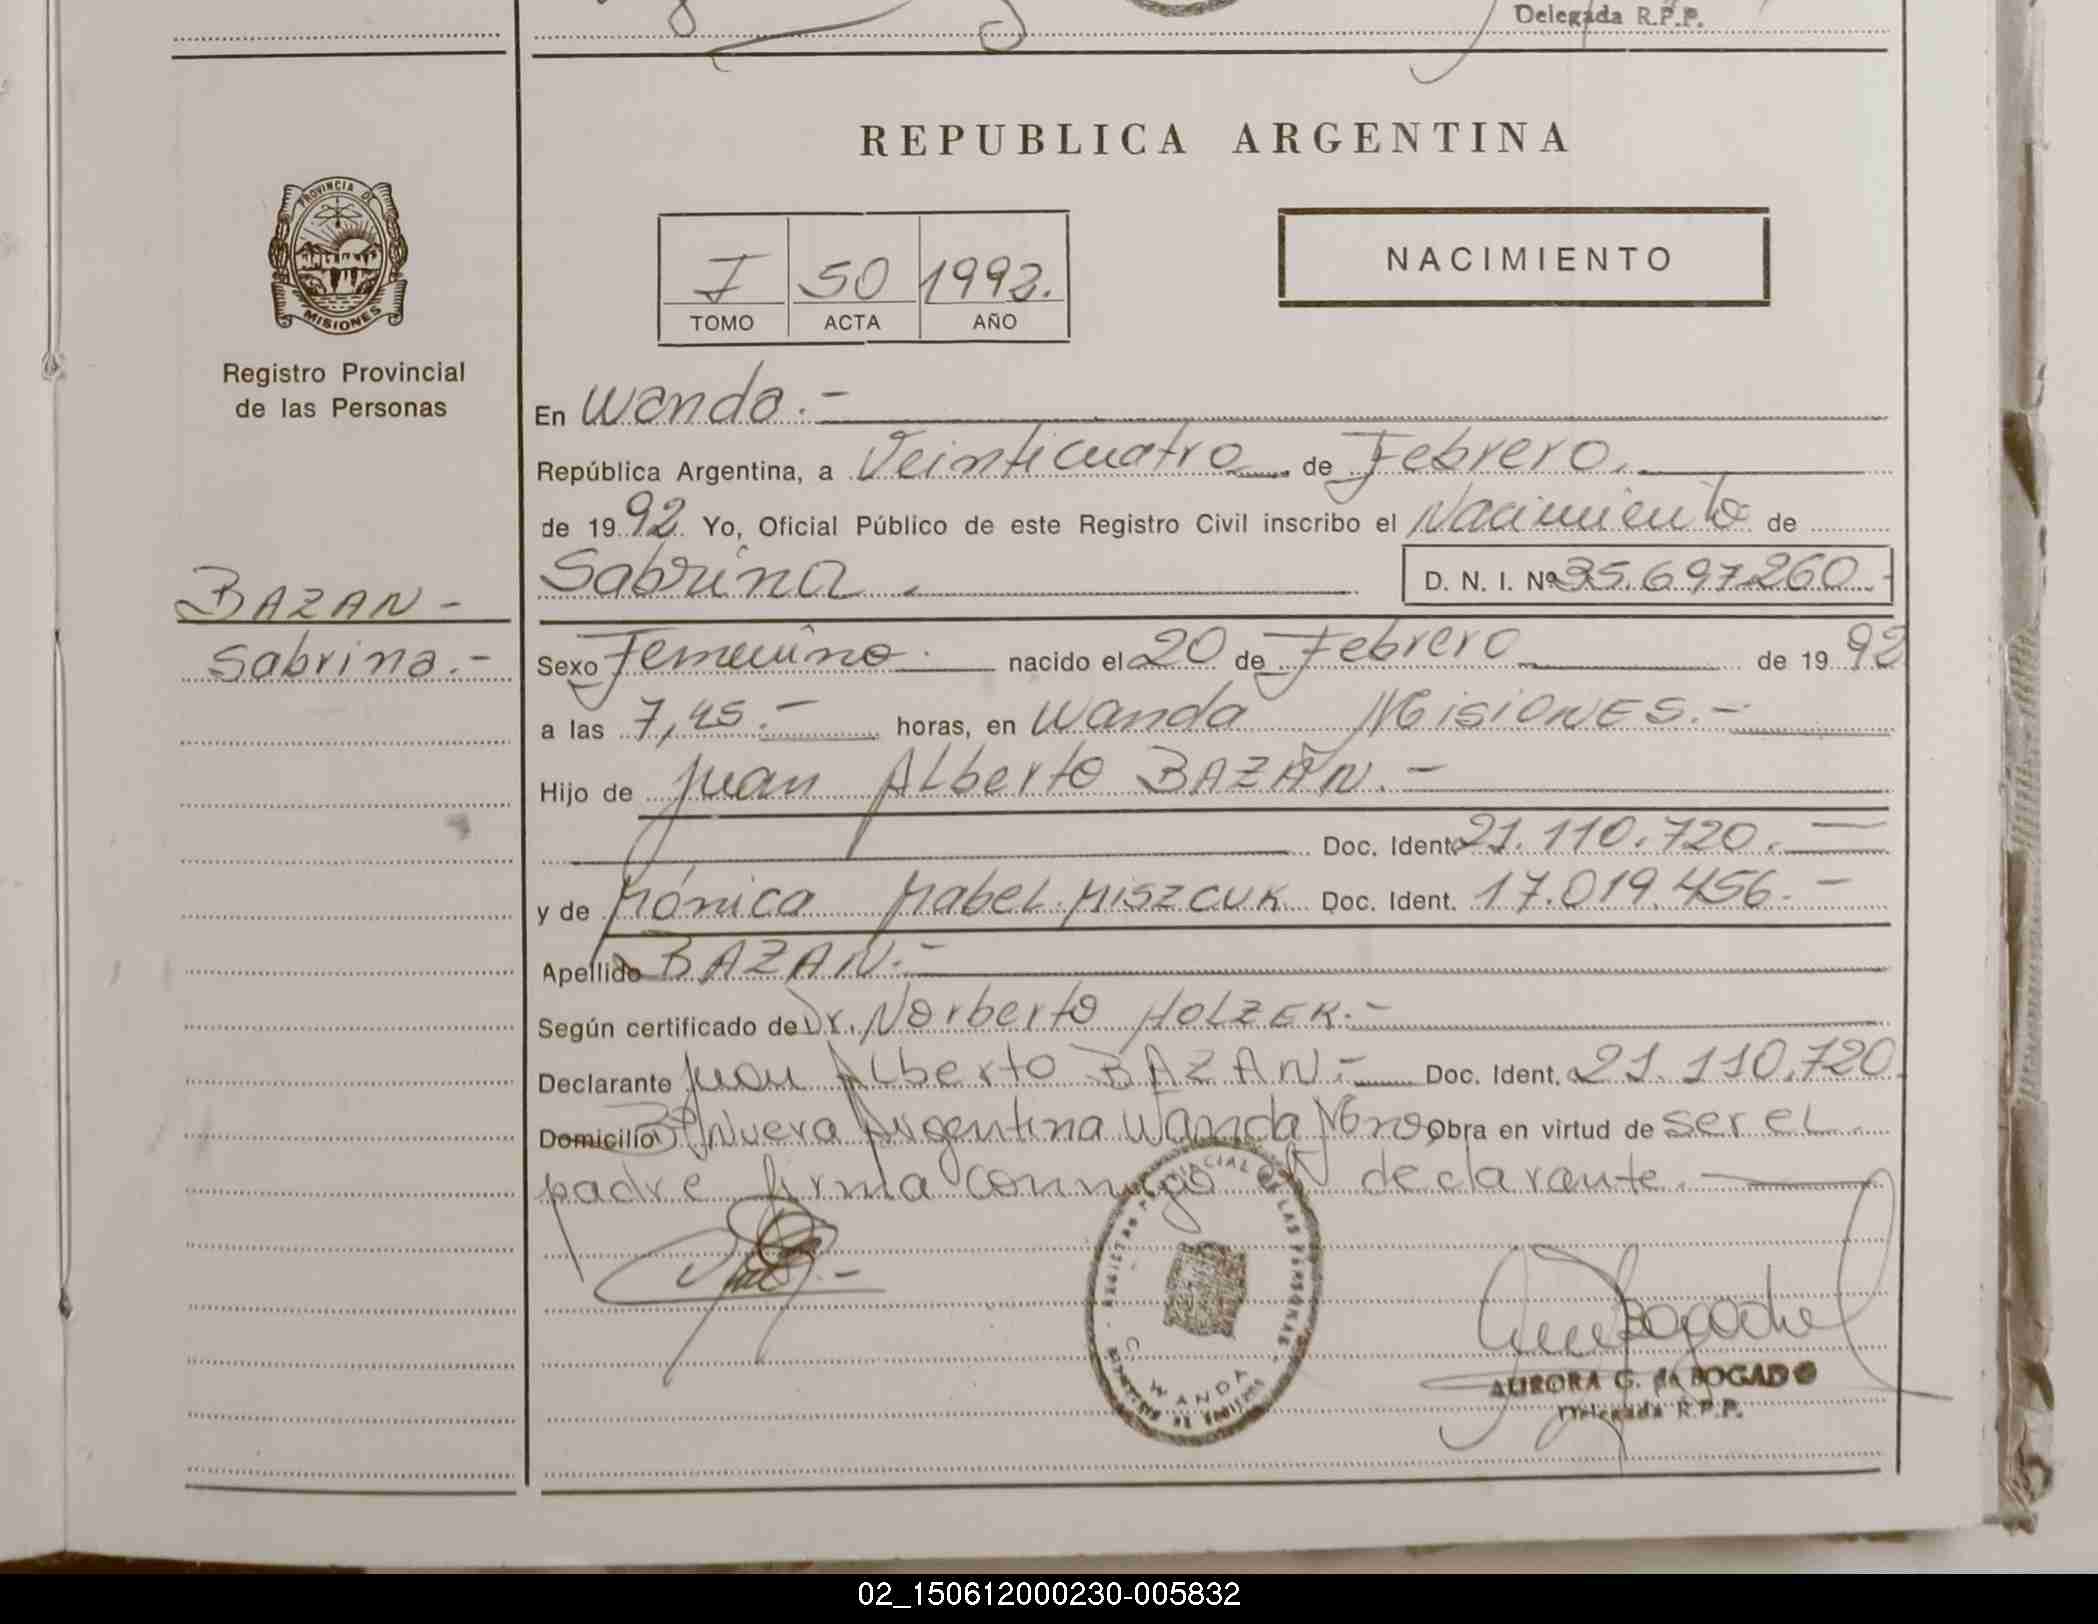 Delegada R.P.P.
REPUBLICA ARGENTINA
PROVINCIA DE
MISIONES
I 50 1992.
TOMO ACTA AÑO
NACIMIENTO
Registro Provincial
de las Personas
BAZAN -
Sabrina.-
En Wanda.-
República Argentina, a Veinticuatro de Febrero.
de 1992 Yo, Oficial Público de este Registro Civil inscribo el Nacimiento de
Sabrina. D. N. I. Nº 35.697.260.-
Sexo Femenino. nacido el 20 de Febrero de 1992
a las 7,45.- horas, en Wanda MISIONES.-
Hijo de Juan Alberto BAZÁN.-
Doc. Ident. 21.110.720.-
y de Mónica Mabel MISZCUK Doc. Ident. 17.019.456.-
Apellido BAZAN.-
Según certificado de Dr. Norberto HOLZER.-
Declarante Juan Alberto BAZAN.- Doc. Ident. 21.110.720.
Domicilio Bº Nueva Argentina Wanda Mnes Obra en virtud de ser el
padre firma conmigo el declarante.-
REGISTRO PROVINCIAL DE LAS PERSONAS
WANDA
AURORA G. de BOGADO
Delegada R.P.P.
02_150612000230-005832